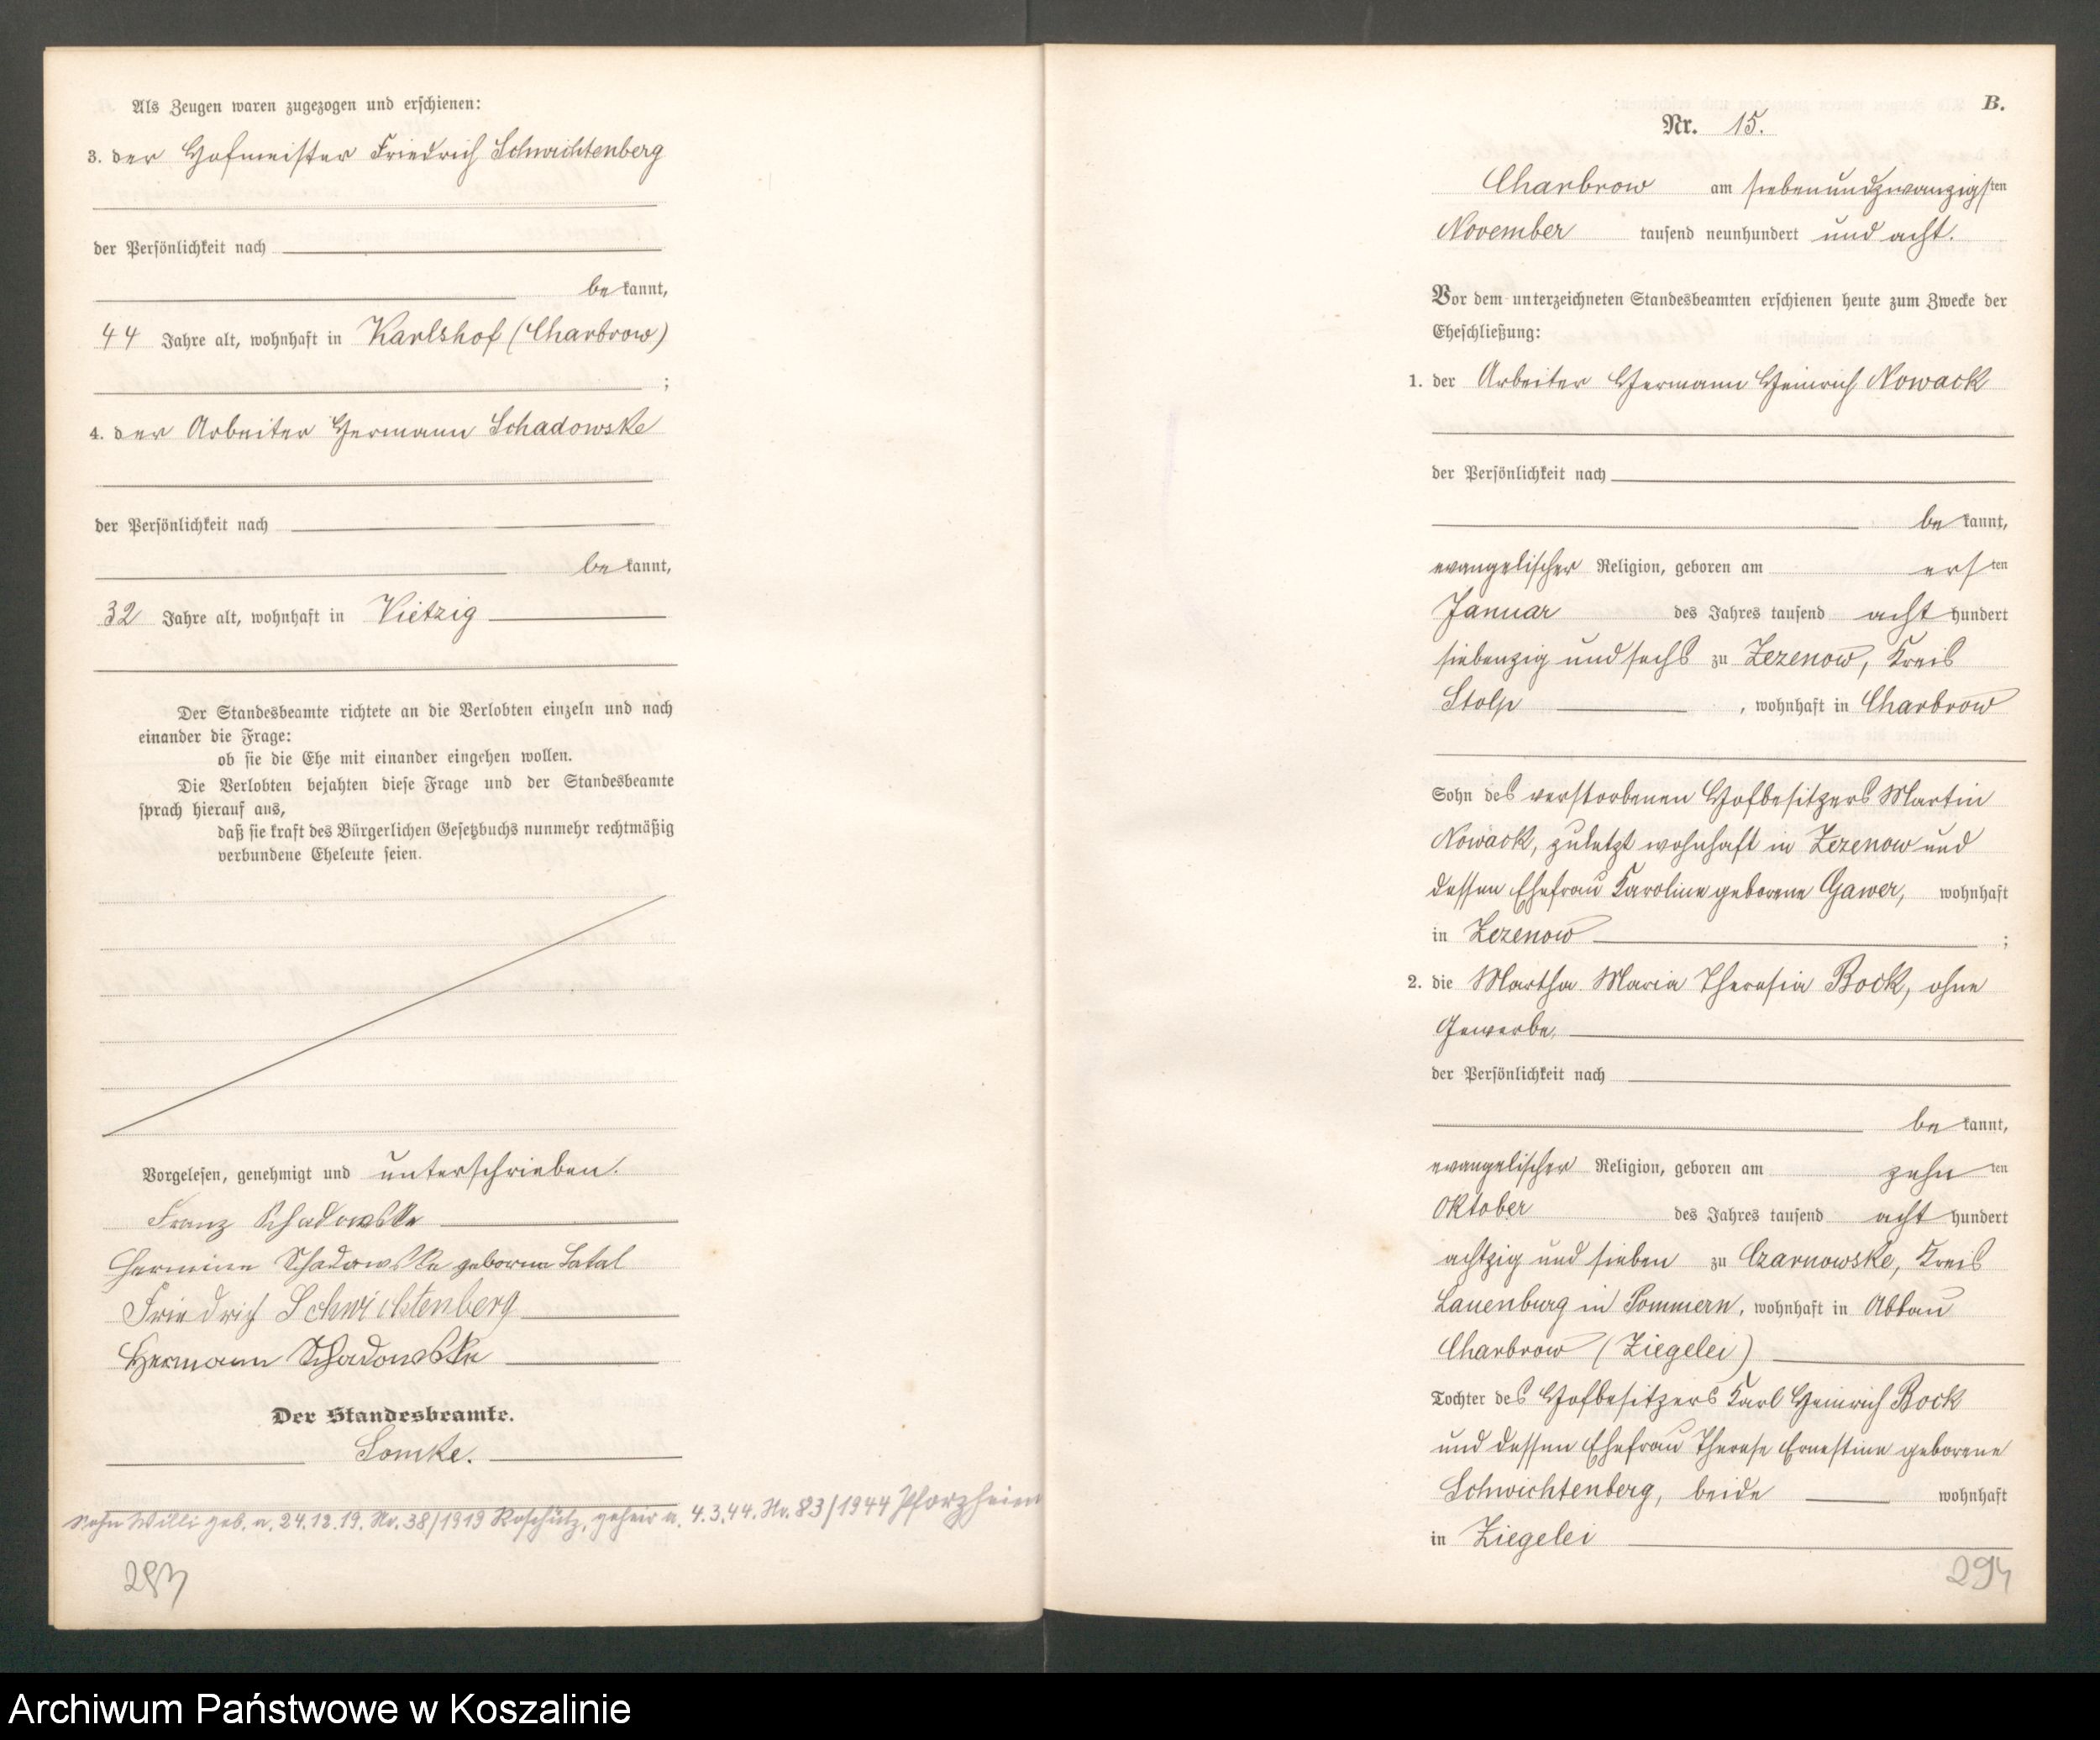 Als Zeugen waren zugezogen und erschienen:
3. der Hofmeister Friedrich Schwichtenberg
der Persönlichkeit nach
be kannt,
44 Jahre alt, wohnhaft in Karlshof (Charbrow)
;
4. der Arbeiter Hermann Schadowske
der Persönlichkeit nach
be kannt,
32 Jahre alt, wohnhaft in Vietzig
Der Standesbeamte richtete an die Verlobten einzeln und nach
einander die Frage:
ob sie die Ehe mit einander eingehen wollen.
Die Verlobten bejahten diese Frage und der Standesbeamte
sprach hierauf aus,
daß sie kraft des Bürgerlichen Gesetzbuchs nunmehr rechtmäßig
verbundene Eheleute seien.
Vorgelesen, genehmigt und unterschrieben.
Franz Schadowske
Hermine Schadowske geborne
Friedrich Schwichtenberg
Hermann Schadowske
Der Standesbeamte.
Lomke.
Sohn Willi geb. a. 24.12.19. Nr. 38/1919 Roschütz, geheir. a. 4.3.44. Nr. 83/1944 Pforzheim
B.
Nr. 15.
Charbrow am siebenundzwanzigsten
November tausend neunhundert und acht.
Vor dem unterzeichneten Standesbeamten erschienen heute zum Zwecke der
Eheschließung:
1. der Arbeiter Hermann Heinrich Nowack
der Persönlichkeit nach
be kannt,
evangelischer Religion, geboren am ersten
Januar des Jahres tausend acht hundert
siebenzig und sechs zu Zezenow, Kreis
Stolp , wohnhaft in Charbrow
Sohn des verstorbenen Hofbesitzers Martin
Nowack, zuletzt wohnhaft in Zezenow und
dessen Ehefrau Karoline geborene Gawer, wohnhaft
in Zezenow ;
2. die Martha Maria Theresia Bock, ohne
Gewerbe,
der Persönlichkeit nach
be kannt,
evangelischer Religion, geboren am zehn ten
Oktober des Jahres tausend acht hundert
achtzig und sieben zu Czarnowske, Kreis
Lauenburg in Pommern, wohnhaft in Abbau
Charbrow (Ziegelei)
Tochter des Hofbesitzers Karl Heinrich Bock
und dessen Ehefrau Therese Ernestine geborene
Schwichtenberg, beide wohnhaft
in Ziegelei
294
Archiwum Państwowe w Koszalinie